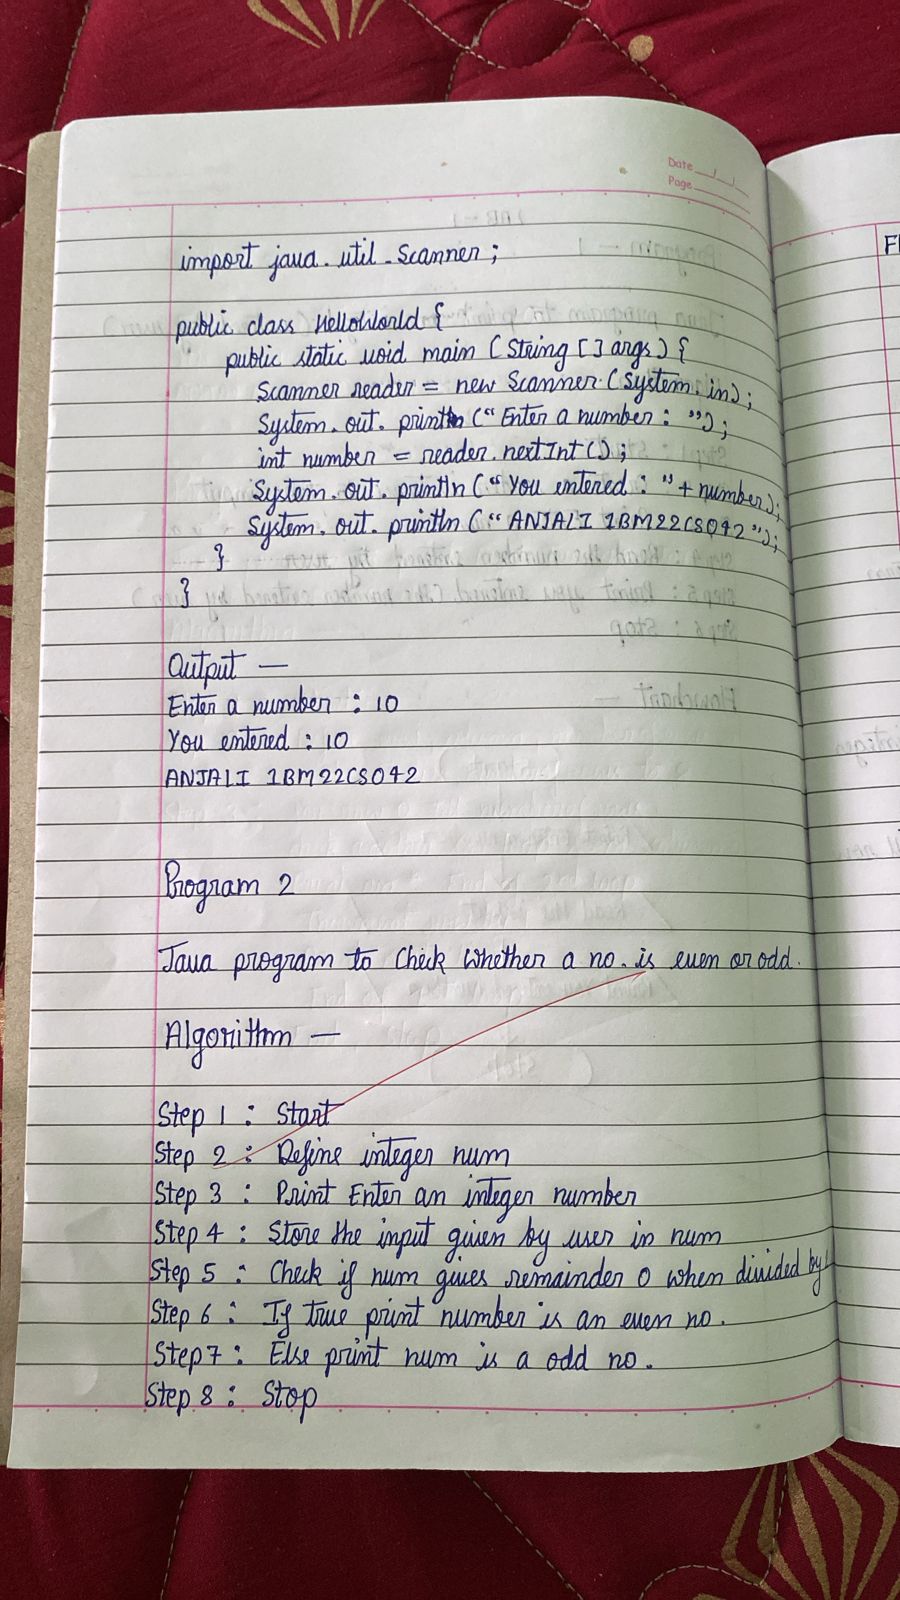 Date
Page
import java.util.Scanner;
public class HelloWorld {
public static void main (String [] args) {
Scanner reader = new Scanner (System.in);
System.out.println ("Enter a number : ");
int number = reader.nextInt();
System.out.println ("You entered : " + number);
System.out.println ("ANJALI 1BM22CS042");
}
}
Output —
Enter a number : 10
You entered : 10
ANJALI 1BM22CS042
Program 2
Java program to Check Whether a no. is even or odd.
Algorithm —
Step 1 : Start
Step 2 : Define integer num
Step 3 : Print Enter an integer number
Step 4 : Store the input given by user in num
Step 5 : Check if num gives remainder 0 when divided by
Step 6 : If true print number is an even no.
Step 7 : Else print num is a odd no.
Step 8 : Stop